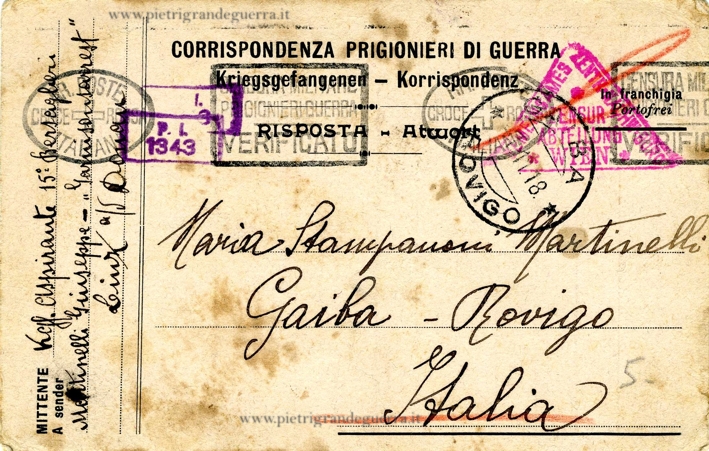 www.pietrigrandeguerra.it
CORRISPONDENZA PRIGIONIERI DI GUERRA
Kriegsgefangenen – Korrispondenz
In franchigia
Portofrei
RISPOSTA - Atwort
CROCE ROSSA
ITALIANA
PRIGIONIERI GUERRA
VERIFICATO
P. I.
1343
CENSURA MIL
ZENSUR
ABTEILUNG
WIEN
18.
Maria Stampanoni Martinelli
Gaiba - Rovigo
Italia
5.-
MITTENTE
A sender
Kgf. Aspirante 15° Bersaglieri
Martinelli Giuseppe -
Linz a/ Donau
www.pietrigrandeguerra.it